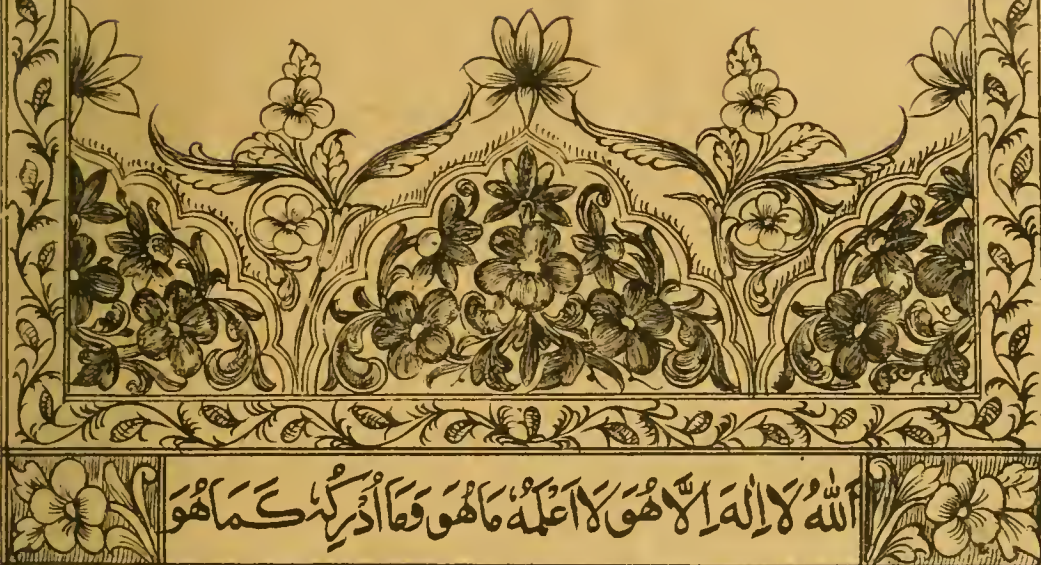 اَللّٰهُ لَا اِلٰهَ اِلَّا هُوَ لَا اَعْلَمُهُ مَا هُوَ وَمَا اُدْرِكُهُ كَمَا هُوَ